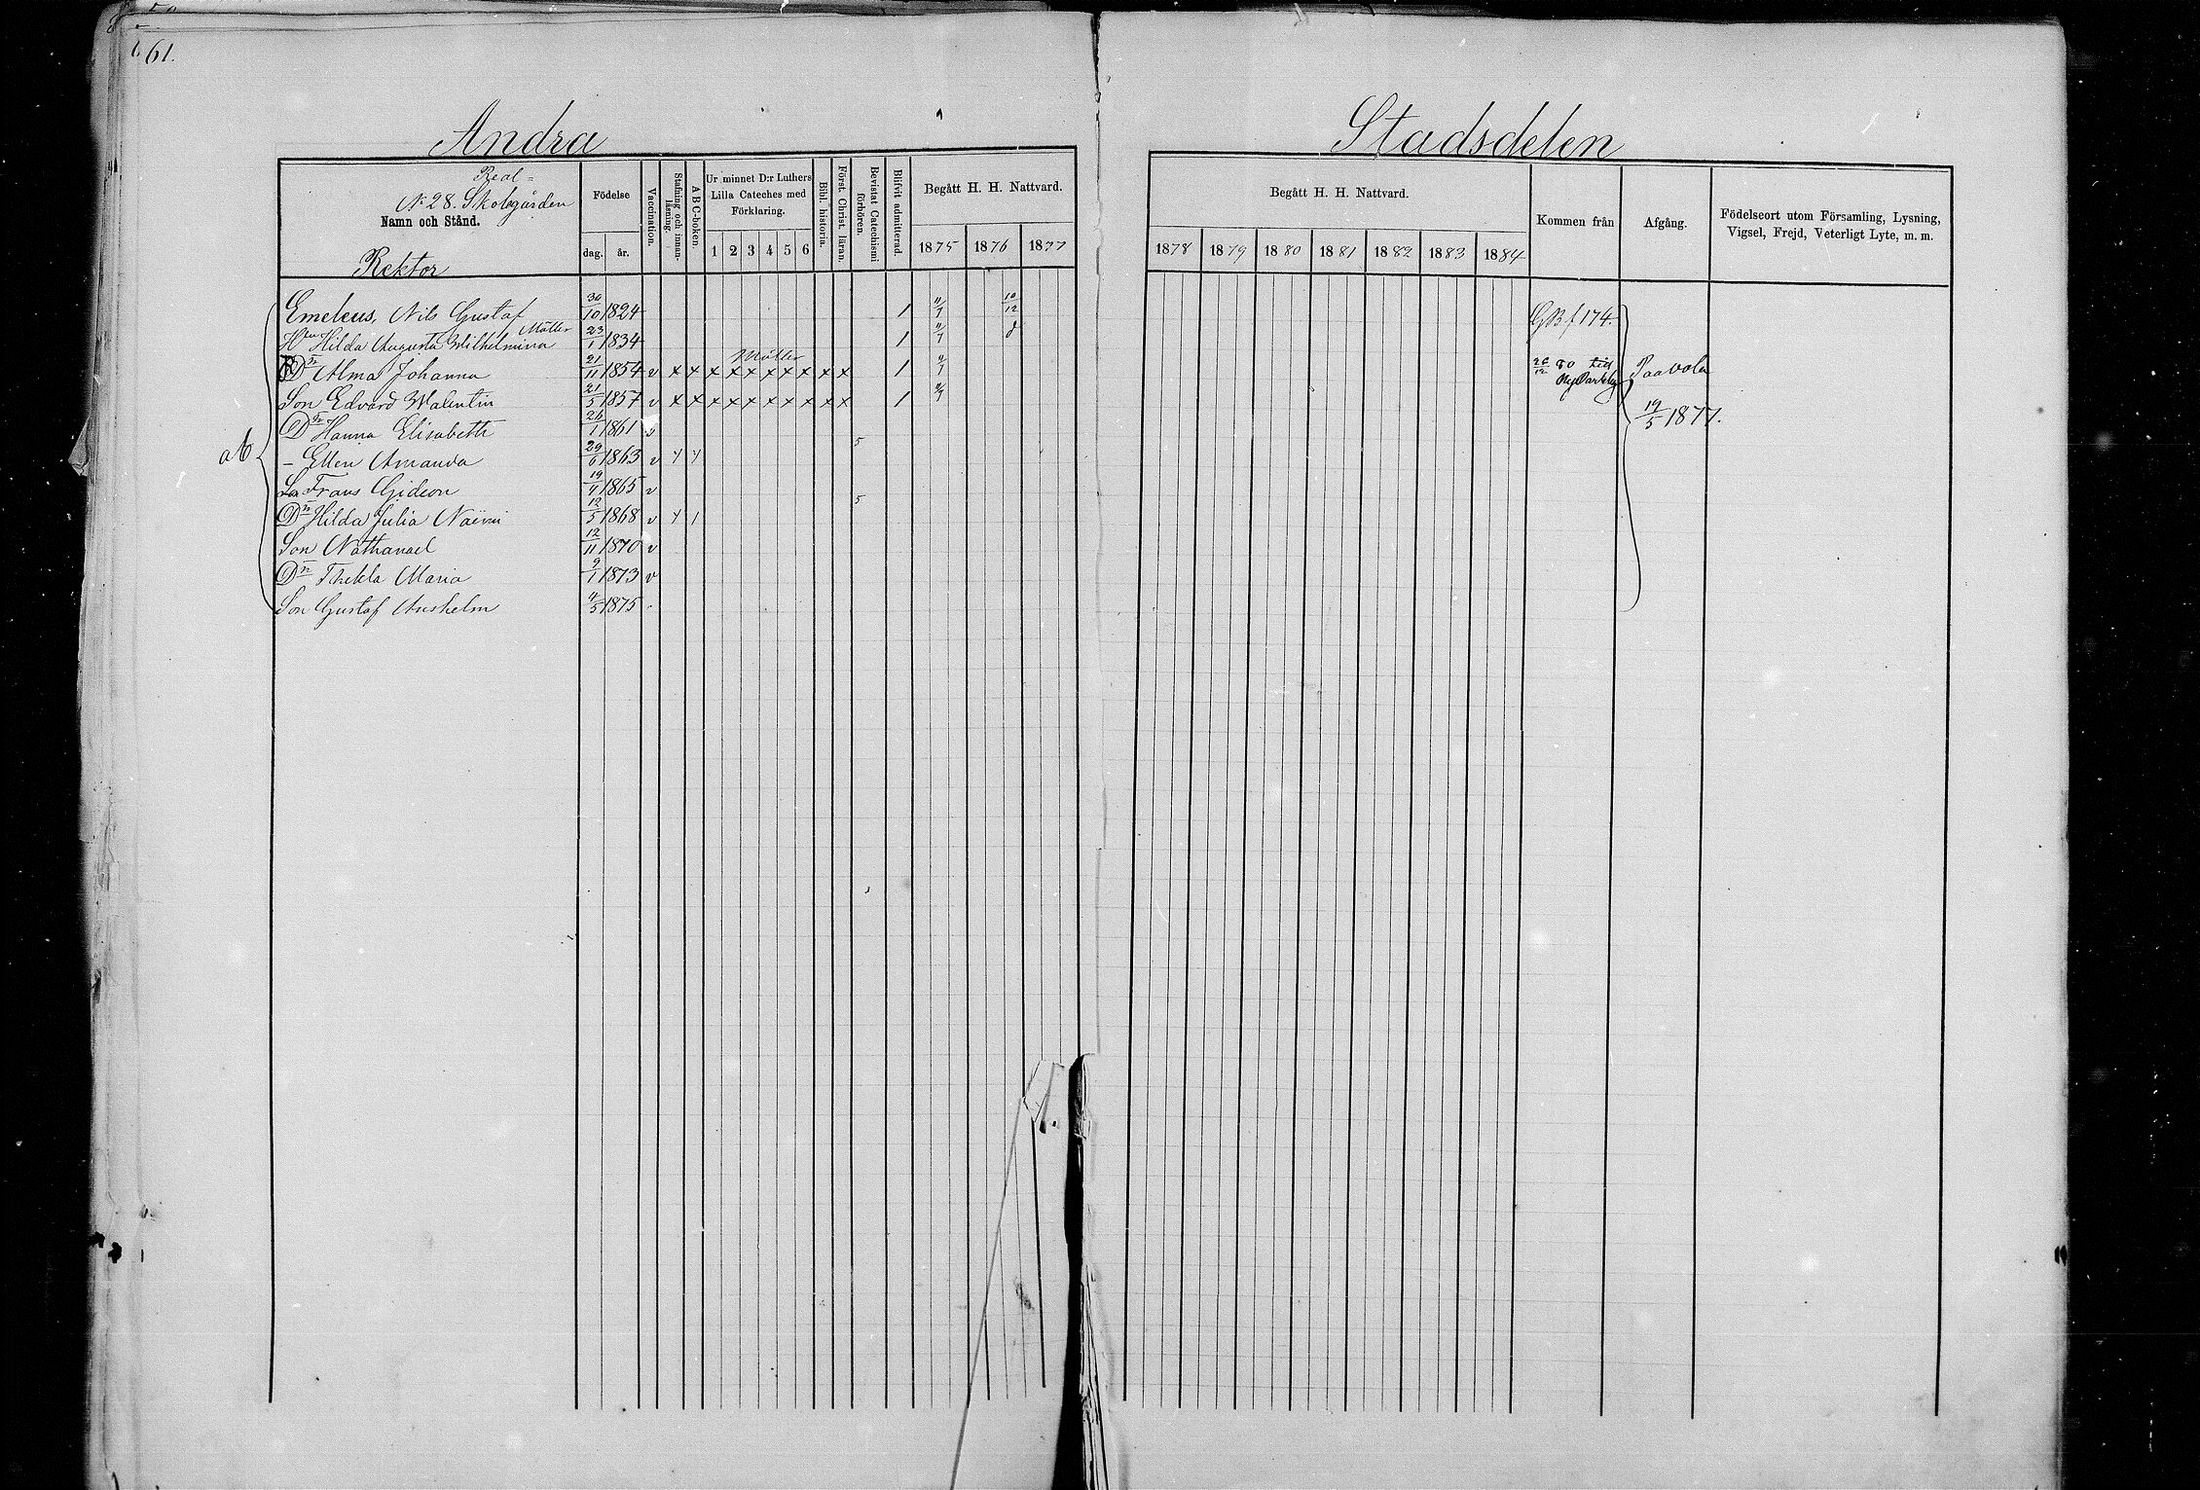 61.
Andra Stadsdelen
Real-
N 28. Skolegården
Namn och Stånd.
Rektor
Födelse
dag. år.
Vaccination.
Stafning och innan-läsning.
ABC-boken
Ur minnet D:r Luthers
Lilla Cateches med
Förklaring.
1 2 3 4 5 6
Bibl. historia.
Först. Christ. läran.
Bevistat Catechismi förhören.
Blifvit admitterad.
Begått H. H. Nattvard.
1875 1876 1877
Begått H. H. Nattvard.
1878 1879 1880 1881 1882 1883 1884
Kommen från
Afgång.
Födelseort utom Församling, Lysning,
Vigsel, Frejd, Veterligt Lyte, m. m.
Emeleus, Nils Gustaf 30/10 1824 1 11/7 10/12 GB f 174.
Möller
Hun Hilda Augusta Wilhelmina 23/1 1834 1 11/7
Möller
Dr Alma Johanna 21/11 1854 v x x x x x x x x x x 1 Paavola
Son Edvard Walentin 21/5 1857 v x x x x x x x x x x 1
19/5 1877.
Dr Hanna Elisabeth 26/1 1861 v
ab
- Ellen Amanda 29/6 1863 v 5
Son Frans Gideon 1865 v
Dr Hilda Julia Naëmi 12/5 1868 v 5
Son Nathanael 12/11 1870 v
Dr Thekla Maria 9/1 1873 v
Son Gustaf Anshelm 4/5 1875